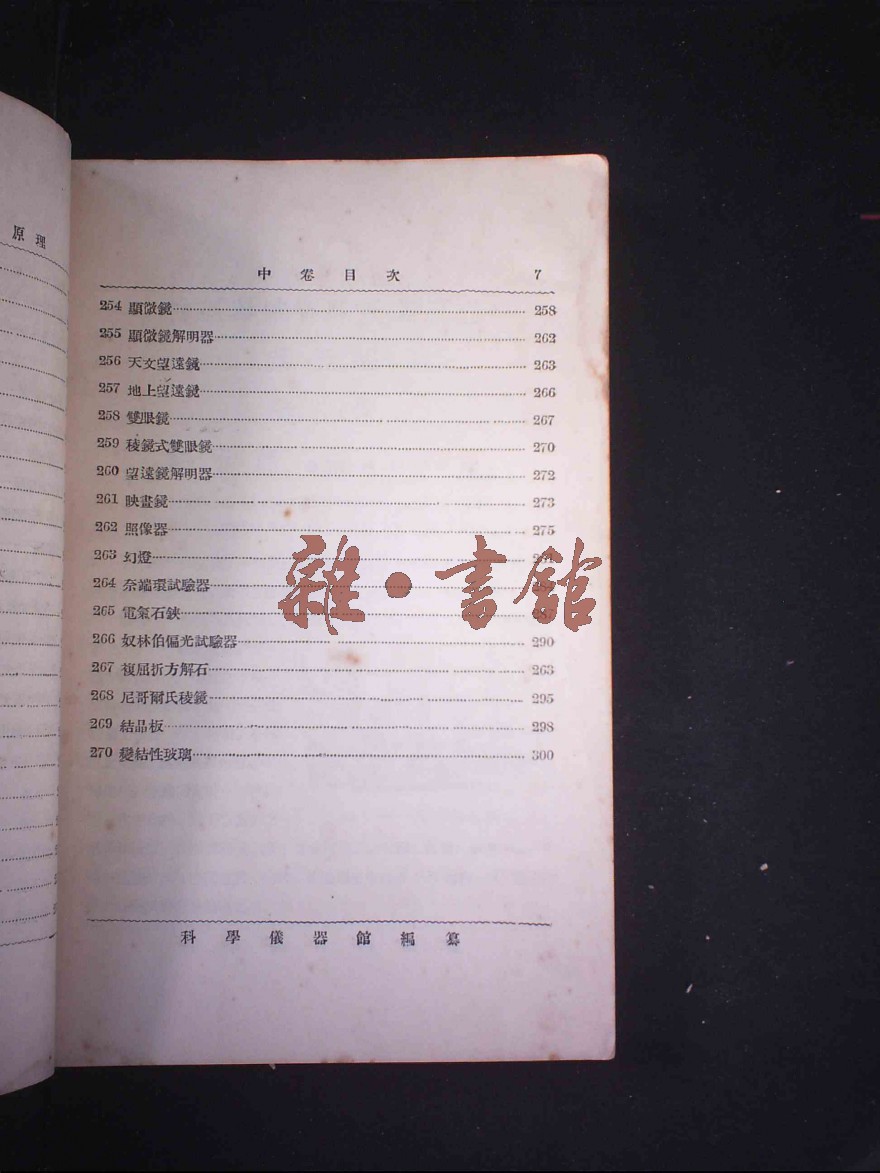 原理
中卷目次 7
254 顯微鏡 258
255 顯微鏡解明器 262
256 天文望遠鏡 263
257 地上望遠鏡 266
258 雙眼鏡 267
259 稜鏡式雙眼鏡 270
260 望遠鏡解明器 272
261 映畫鏡 273
262 照像器 275
263 幻燈
264 奈端環試驗器
265 電氣石鋏 287
266 奴林伯偏光試驗器 290
267 複屈折方解石 263
268 尼哥爾氏稜鏡 295
269 結晶板 298
270 變結性玻璃 300
雜·書館
科學儀器館編纂